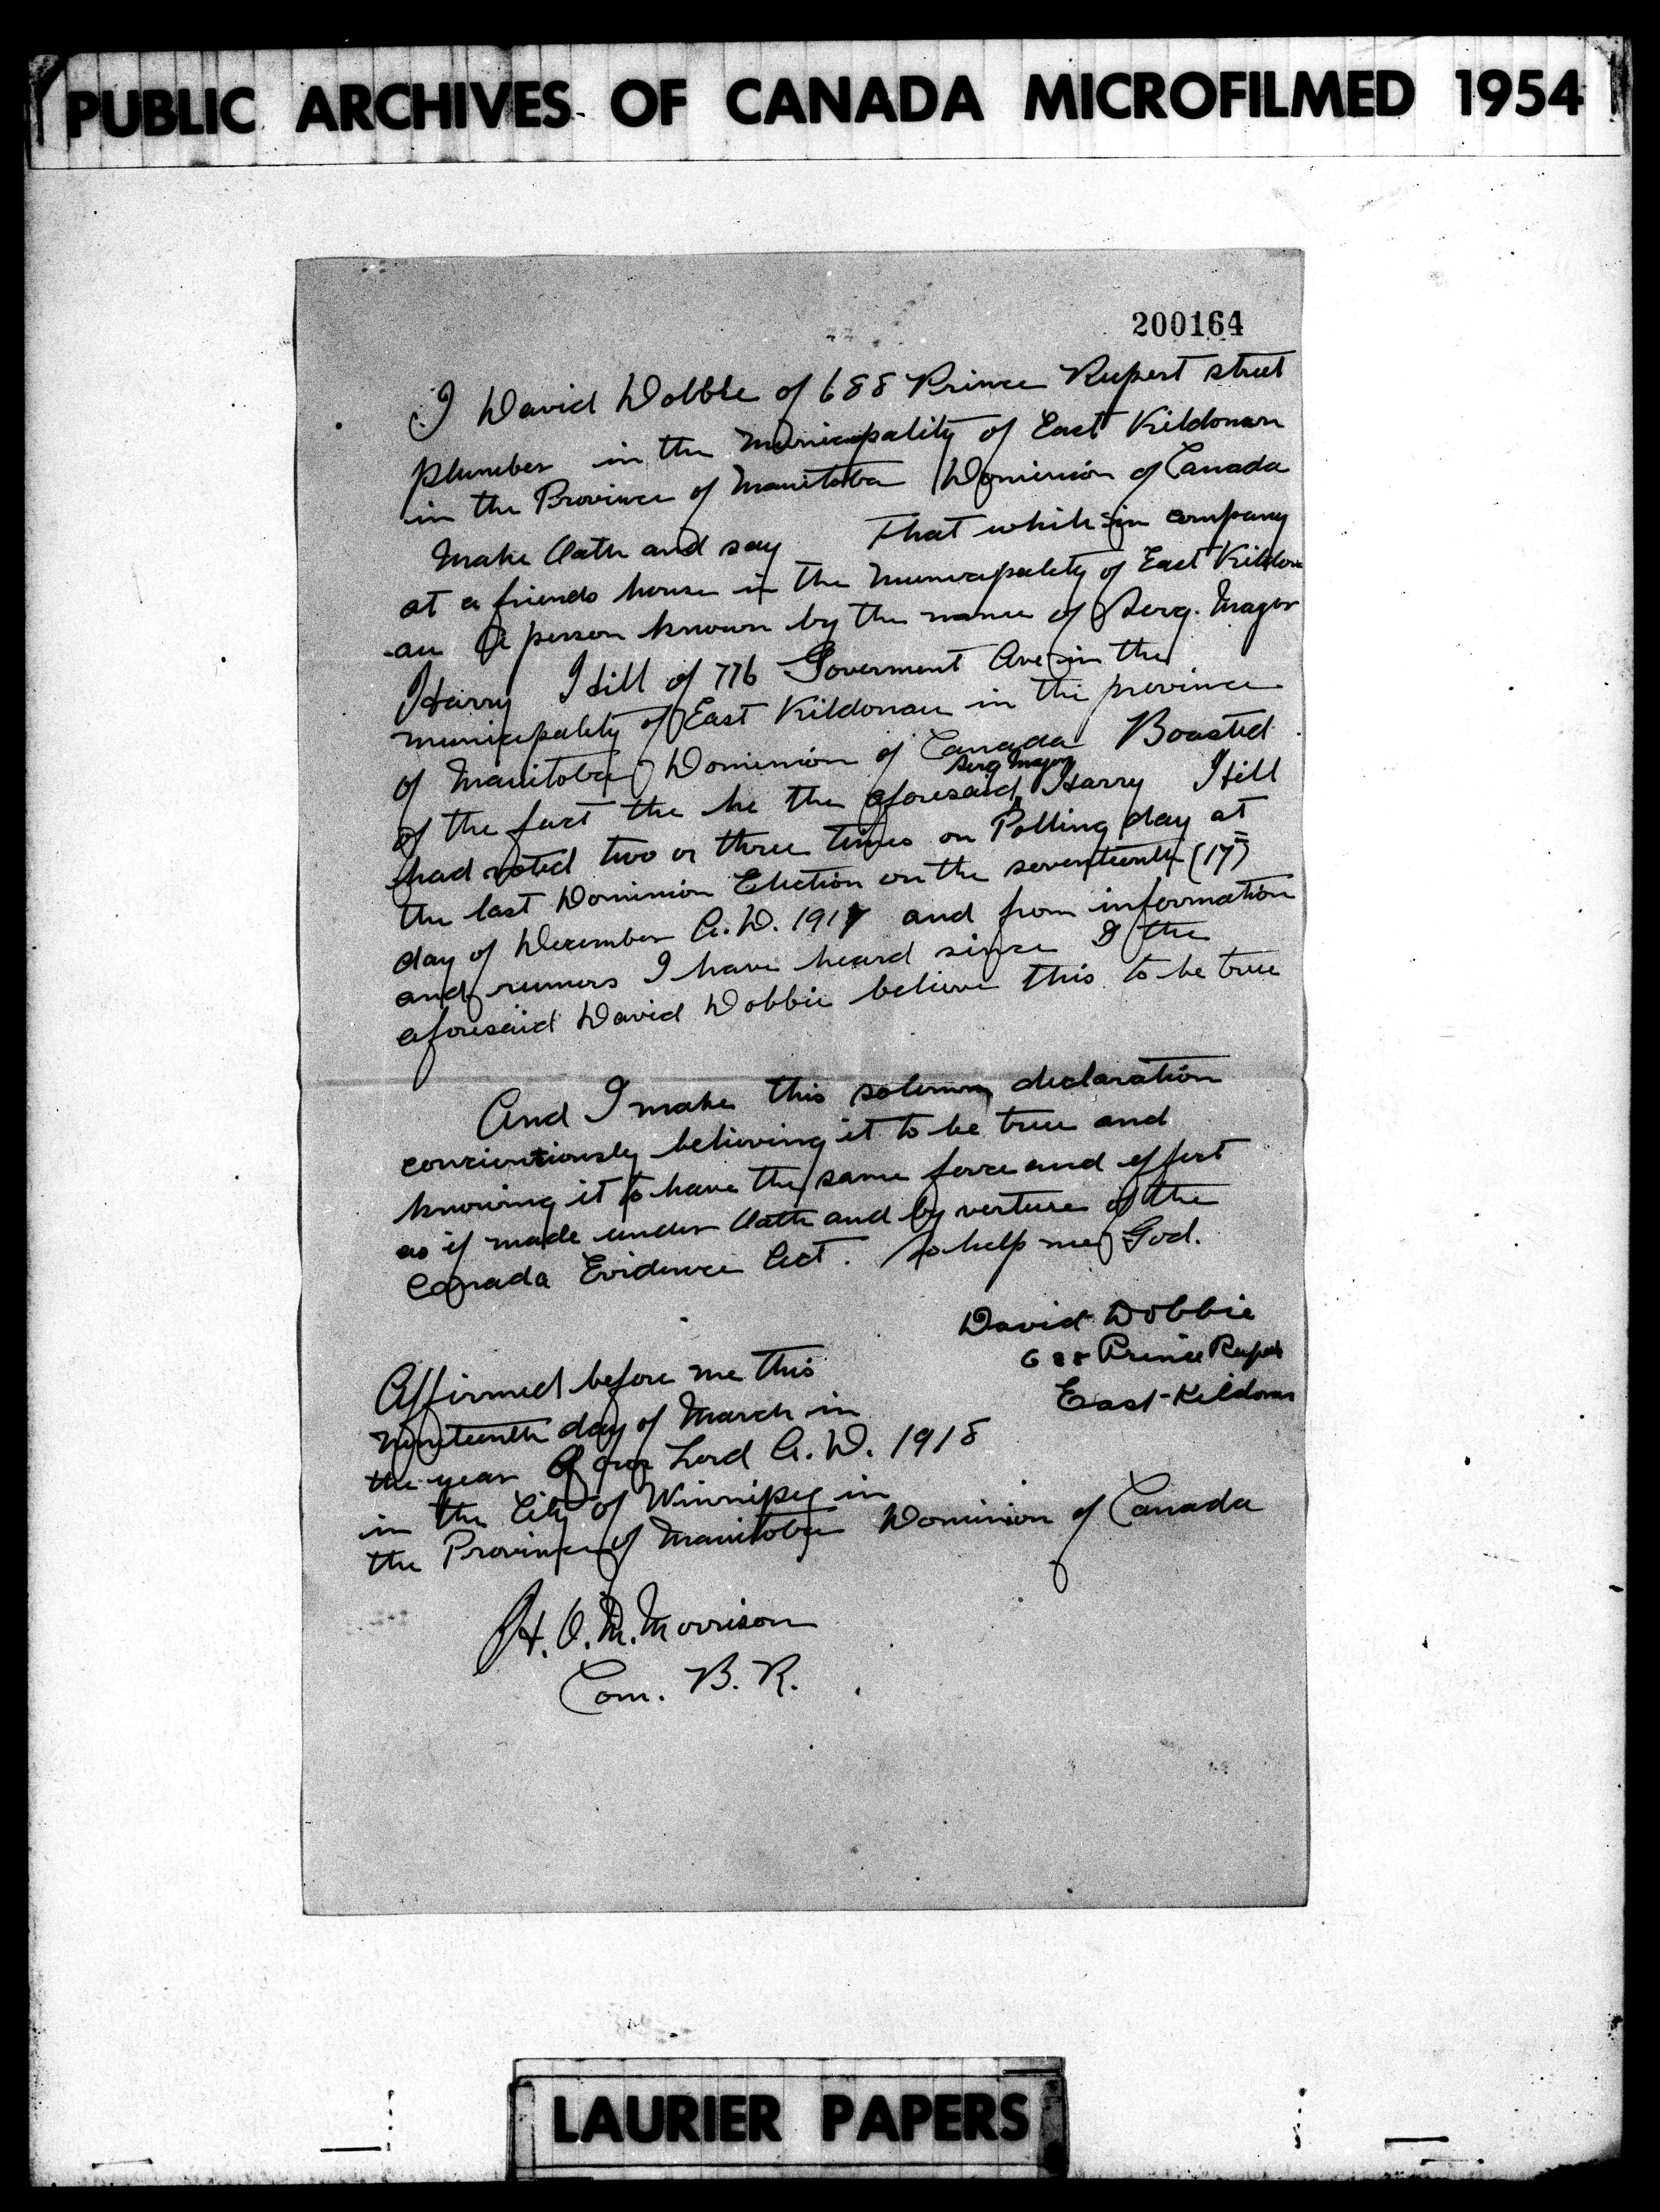 PUBLIC ARCHIVES OF CANADA MICROFILMED 1954
200164
I David Dobbie of 688 Prince Rupert street
plumber in the Municipality of East Kildonan
in the Province of Manitoba Dominion of Canada
Make Oath and say That while in company
at a friends house in the Municipality of East Kildon
an a person known by the name of Serg. Mager
Harry Hill of 776 Goverment Ave in the
municipality of East Kildonan in the province
of Manitoba Dominion of Canada Boasted
of the fact the he the aforesaid Serg Mager Harry Hill
had voted two or three times on Polling day at
the last Dominion Election on the seventeenth (17)
day of December A.D. 1917 and from information
and rumors I have heard since I the
aforesaid David Dobbie believe this to be true
And I make this solemn declaration
concientiously believing it to be true and
knowing it to have the same force and effect
as if made under Oath and by verture of the
Canada Evidence Act. So help me God.
David Dobbie
688 Prince Rupert
East-Kildonan
Affirmed before me this
nineteenth day of March in
the year of our Lord A.D. 1918
in the City of Winnipeg in
the Province of Manitoba Dominion of Canada
H. O. M. Morrison
Com. B. R.
LAURIER PAPERS